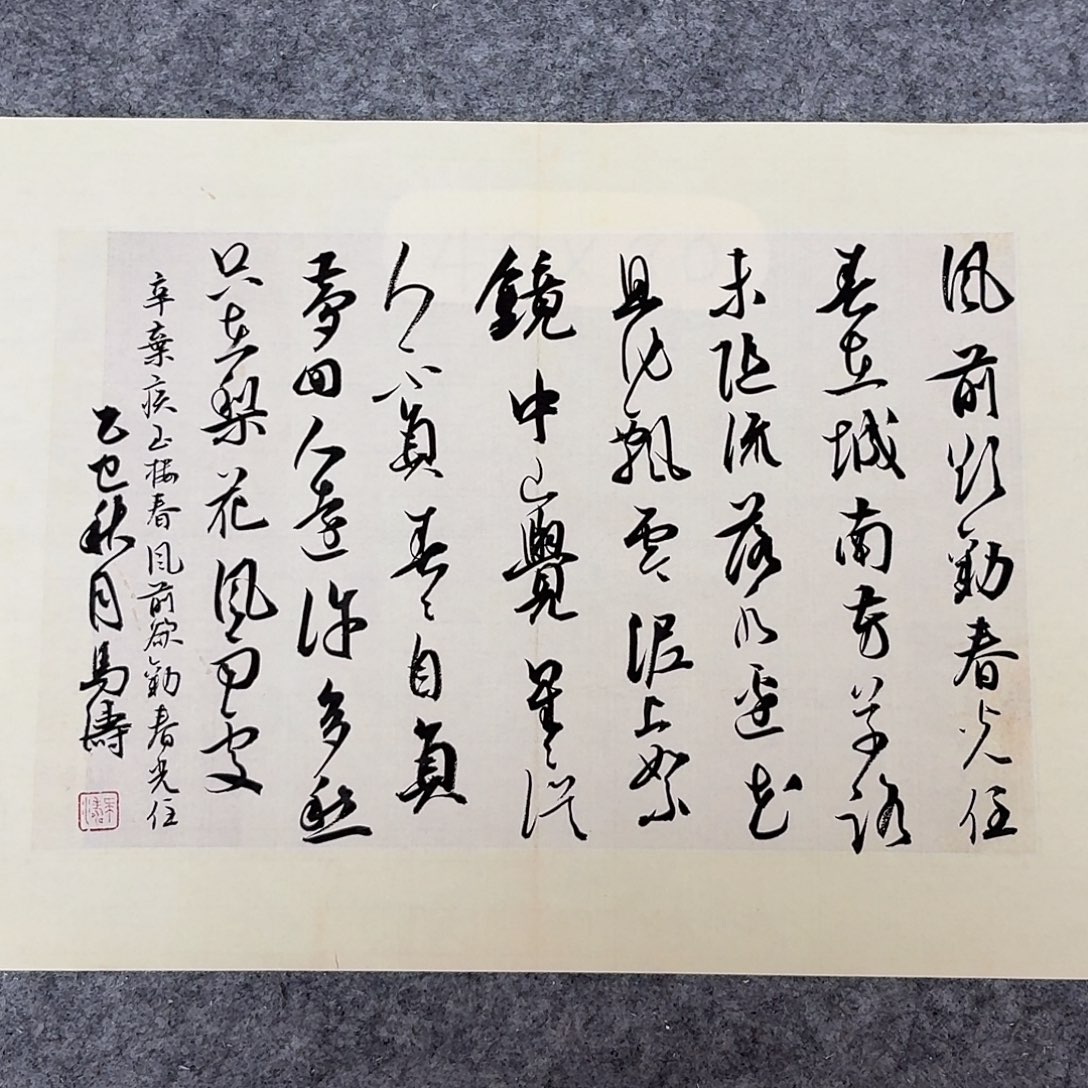 風前欲勸春光住
春在城南芳草路
未随流落水邊花
且作飄零泥上絮
鏡中已覺星〻誤
人不負春〻自負
夢回人遠許多愁
只在梨花風雨處
辛棄疾玉楼春風前欲勸春光住
乙巳秋月馬濤